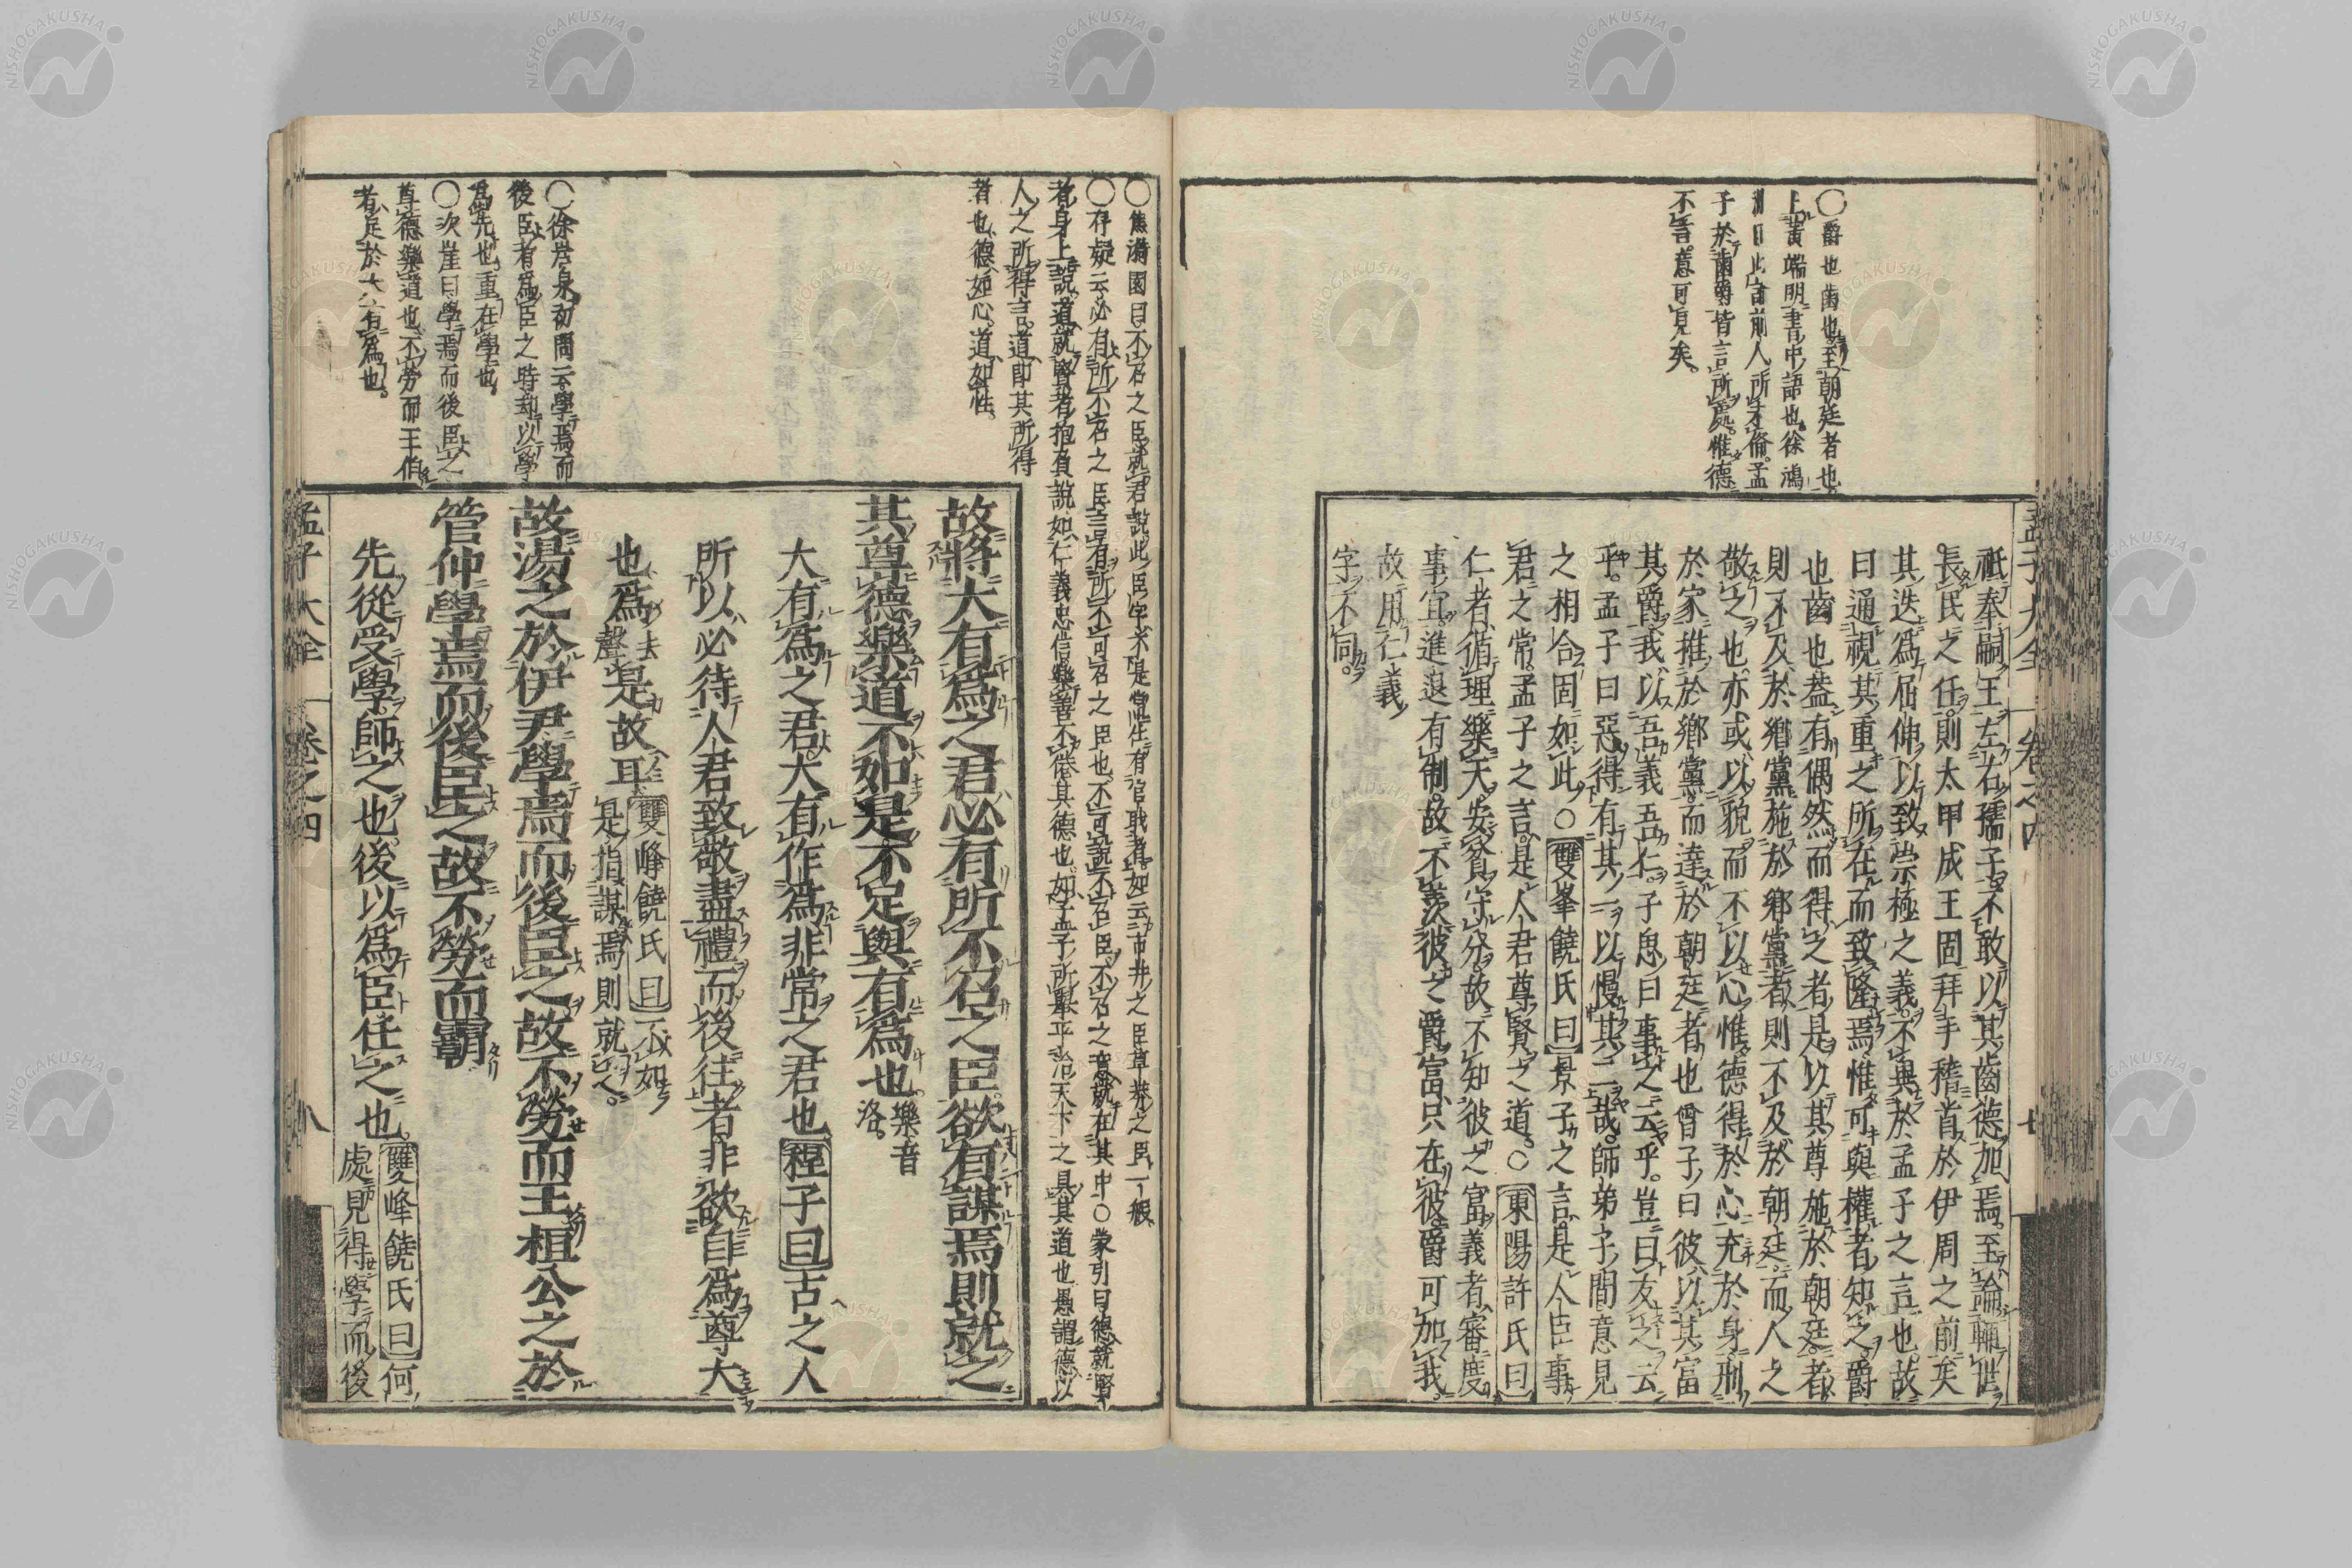 孟子大全 卷之四 七
祇奉嗣王左右孺子不敢以其齒德加焉至論輔世
長民之任則太甲成王固拜手稽首於伊周之前矣
其迭爲屈伸以致崇極之義不異於孟子之言也故
曰通視其重之所在而致隆焉惟可與權者知之爵
也齒也蓋有偶然而得之者是以其尊施於朝廷者
則不及於鄕黨施於鄕黨者則不及於朝廷而人之
敬之也亦或以貌而不以心惟德得於心充於身刑
於家推於鄕黨而達於朝廷者也曾子曰彼以其富
其爵我以吾義吾仁子思曰事之云乎豈曰友之云
乎孟子曰惡得有其一以慢其二哉師弟子間意見
之相合固如此○雙峯饒氏曰景子之言是人臣事
君之常孟子之言是人君尊賢之道○東陽許氏曰
仁者循理樂天安貧守分故不知彼之富義者審度
事宜進退有制故不羨彼之爵富只在彼爵可加我
故用仁義
字不同
○爵也齒也至朝廷者也
上黃端明書中語也徐鴻
洲曰此言前人所未備孟
子於齒爵皆言所處惟德
不言意可見矣
○焦漪園曰不召之臣就君說此臣字不是當生有官職者如云市井之臣草莽之臣一般
○存疑云必有所不召之臣言有所不可召之臣也不可說不召臣不召之意就在其中○蒙引曰德就賢
者身上說道就賢者抱負說如仁義忠信樂善不倦其德也如孟子所擧平治天下之具其道也愚謂德以
人之所得言道即其所得
者也德如心道如性
故將大有爲之君必有所不召之臣欲有謀焉則就之
其尊德樂道不如是不足與有爲也樂音洛
大有爲之君大有作爲非常之君也程子曰古之人
所以必待人君致敬盡禮而後往者非欲自爲尊大
也爲去聲是故耳雙峰饒氏曰不如是指謀焉則就之
故湯之於伊尹學焉而後臣之故不勞而王桓公之於
管仲學焉而後臣之故不勞而霸
先從受學師之也後以爲臣任之也雙峰饒氏曰何處見得學而後
○徐岩泉初問云學焉而
後臣者爲臣之時却以學
爲先也重在學也
○次崖曰學焉而後臣之
尊德樂道也不勞而王伯
者足於大有爲也
孟子大全 卷之四 八
NISHOGAKUSHA